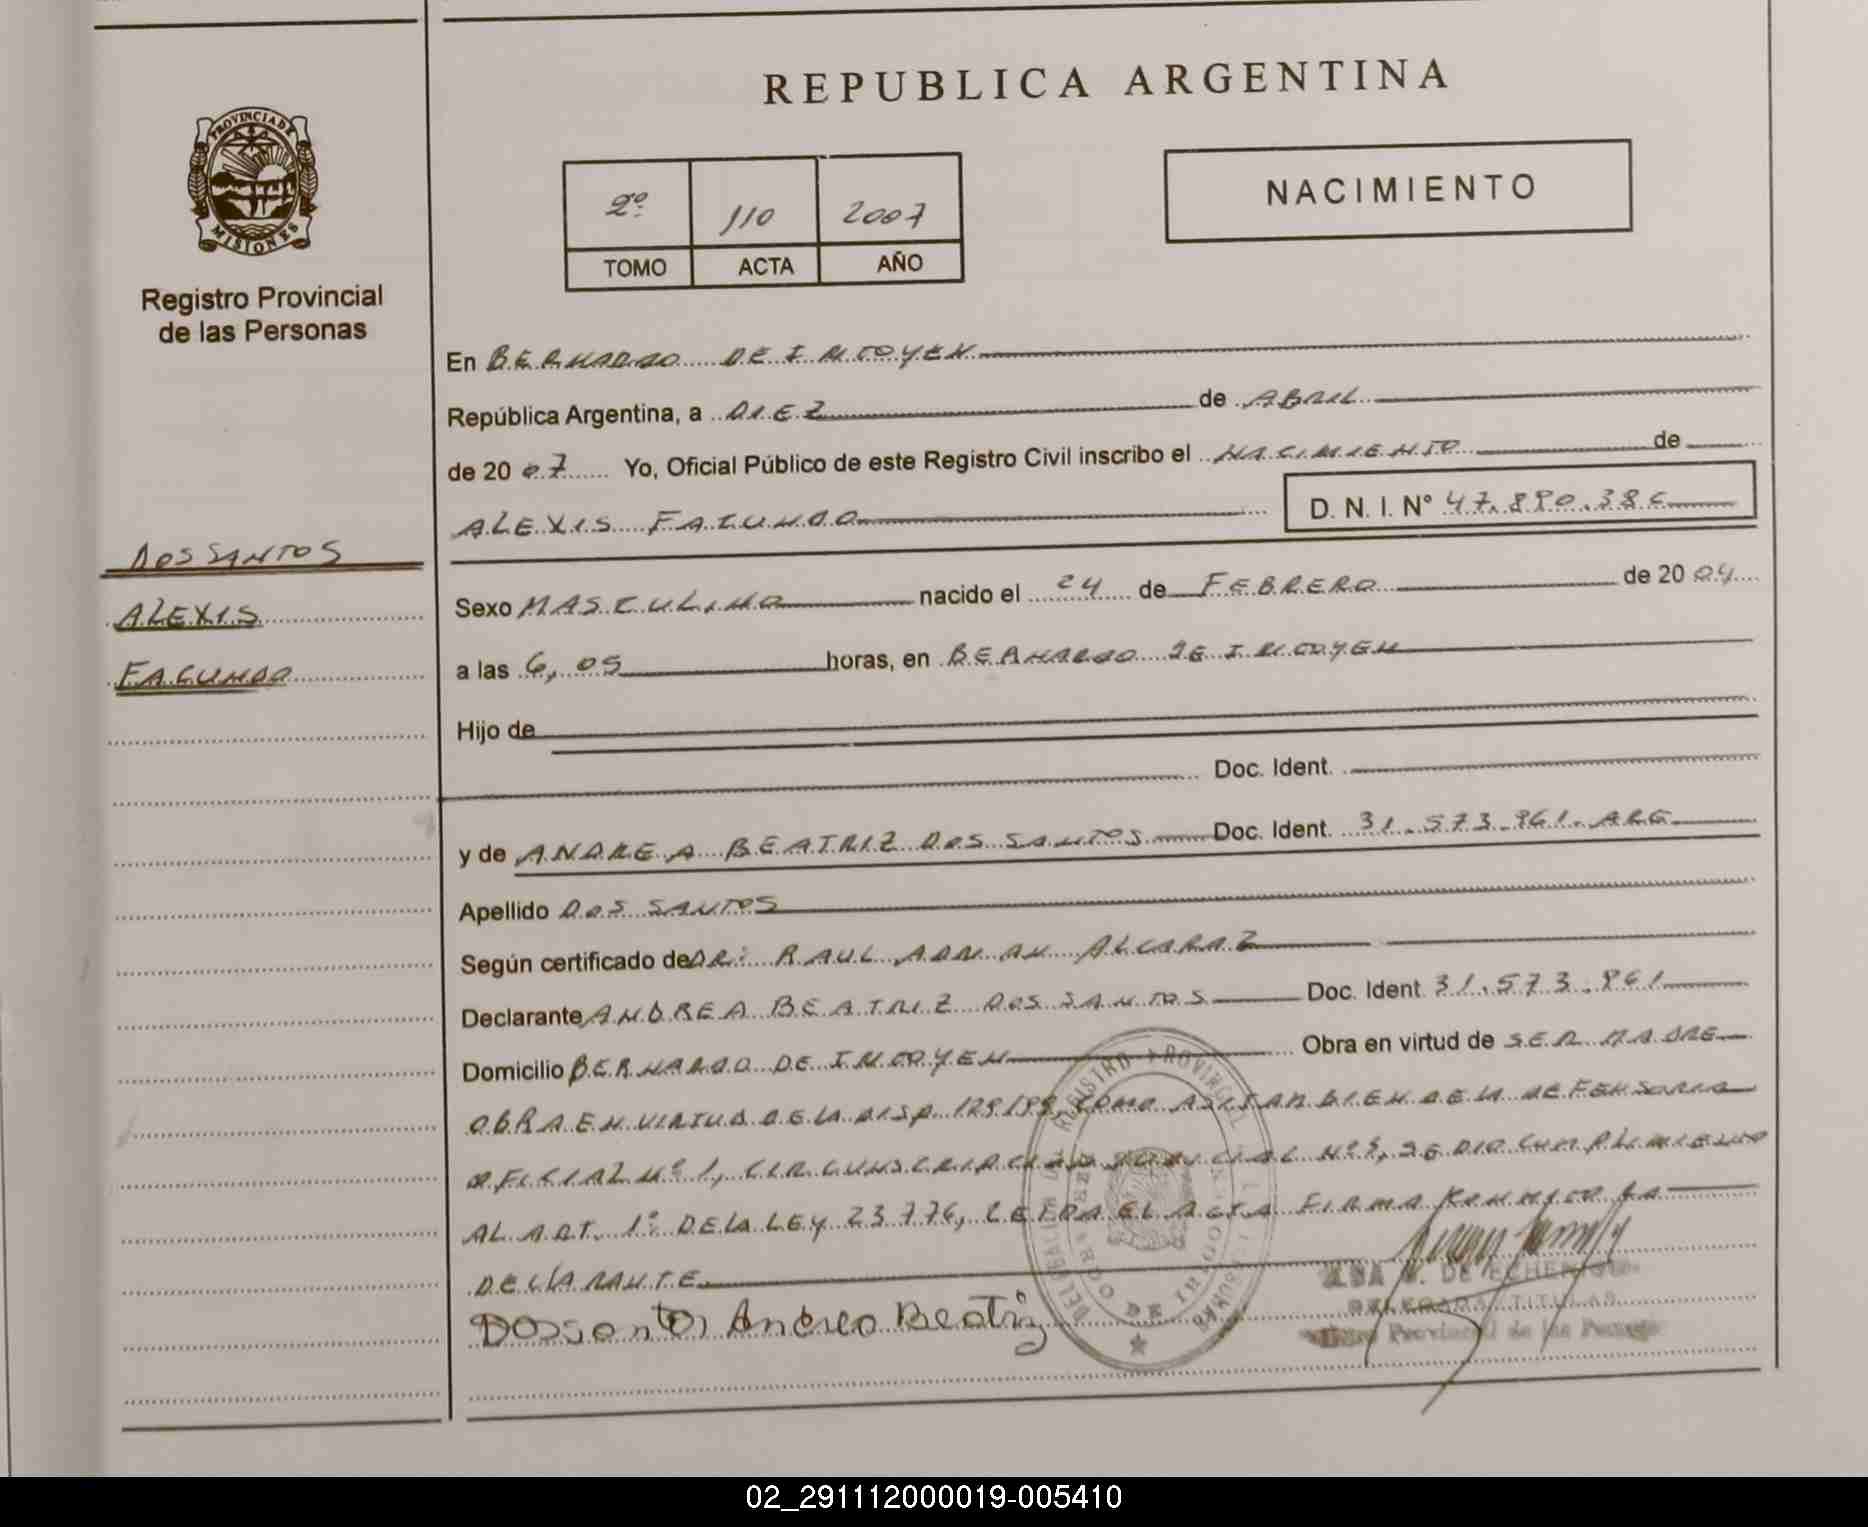 REPUBLICA ARGENTINA
PROVINCIA DE
MISIONES
Registro Provincial
de las Personas
2º 110 2007
TOMO ACTA AÑO
NACIMIENTO
En BERNARDO DE IRIGOYEN
República Argentina, a DIEZ de ABRIL
de 2007 Yo, Oficial Público de este Registro Civil inscribo el NACIMIENTO de
ALEXIS FACUNDO D. N. I. Nº 47.890.386
DOS SANTOS
ALEXIS
FACUNDO
Sexo MASCULINO nacido el 24 de FEBRERO de 2004
a las 6,05 horas, en BERNARDO DE IRIGOYEN
Hijo de
Doc. Ident.
y de ANDREA BEATRIZ DOS SANTOS Doc. Ident. 31.573.961.ARG
Apellido DOS SANTOS
Según certificado de DR: RAUL ADRIAN ALCARAZ
Declarante ANDREA BEATRIZ DOS SANTOS Doc. Ident 31.573.961
Domicilio BERNARDO DE IRIGOYEN Obra en virtud de SER MADRE
OBRA EN VIRTUD DE LA DISP 129/99, COMO ASI TAMBIEN DE LA DEFENSORIA
OFICIAL Nº 1, CIRCUNSCRIPCION JUDICIAL Nº 3, SE DIO CUMPLIMIENTO
AL ART. 1º DE LA LEY 23776, LEIDA EL ACTA FIRMA CONMIGO LA
DECLARANTE
Dossantos Andrea Beatriz
DE ECHE
DELEGADA TITULAR
Provincial de las Personas
02_291112000019-005410